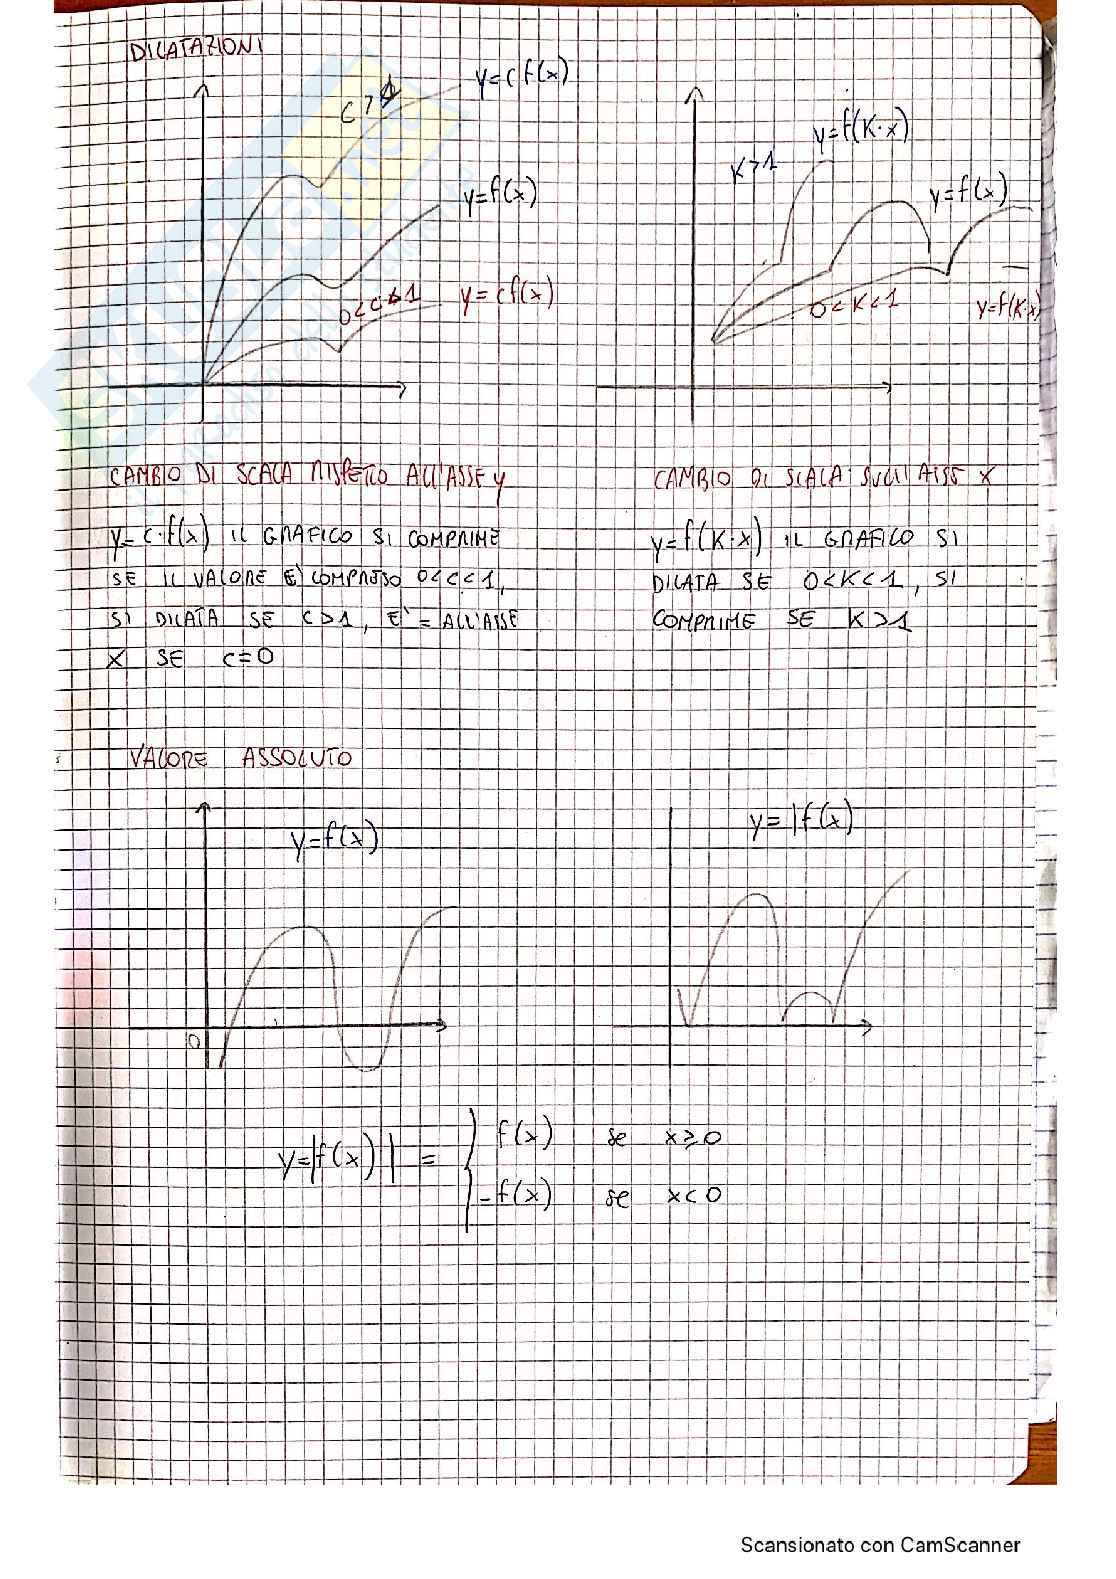 DILATAZIONI
y=cf(x)
c>1
y=f(x)
0<c<1
y=cf(x)
y=f(K·x)
K>1
y=f(x)
0<K<1
y=f(K·x)
CAMBIO DI SCALA RISPETTO ALL'ASSE y
y=c·f(x) IL GRAFICO SI COMPRIME
SE IL VALORE E' COMPRESO 0<c<1,
SI DILATA SE C>1, E' = ALL'ASSE
X SE C=0
CAMBIO DI SCALA SULL'ASSE X
y=f(K·x) IL GRAFICO SI
DILATA SE 0<K<1, SI
COMPRIME SE K>1
VALORE ASSOLUTO
y=f(x)
0
y=|f(x)
y=|f(x)| = { f(x) se x≥0
-f(x) se x<0
Scansionato con CamScanner